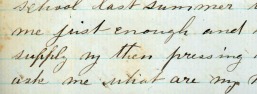 school last summer
me just enough and
supply my then pressing
ask me what are my